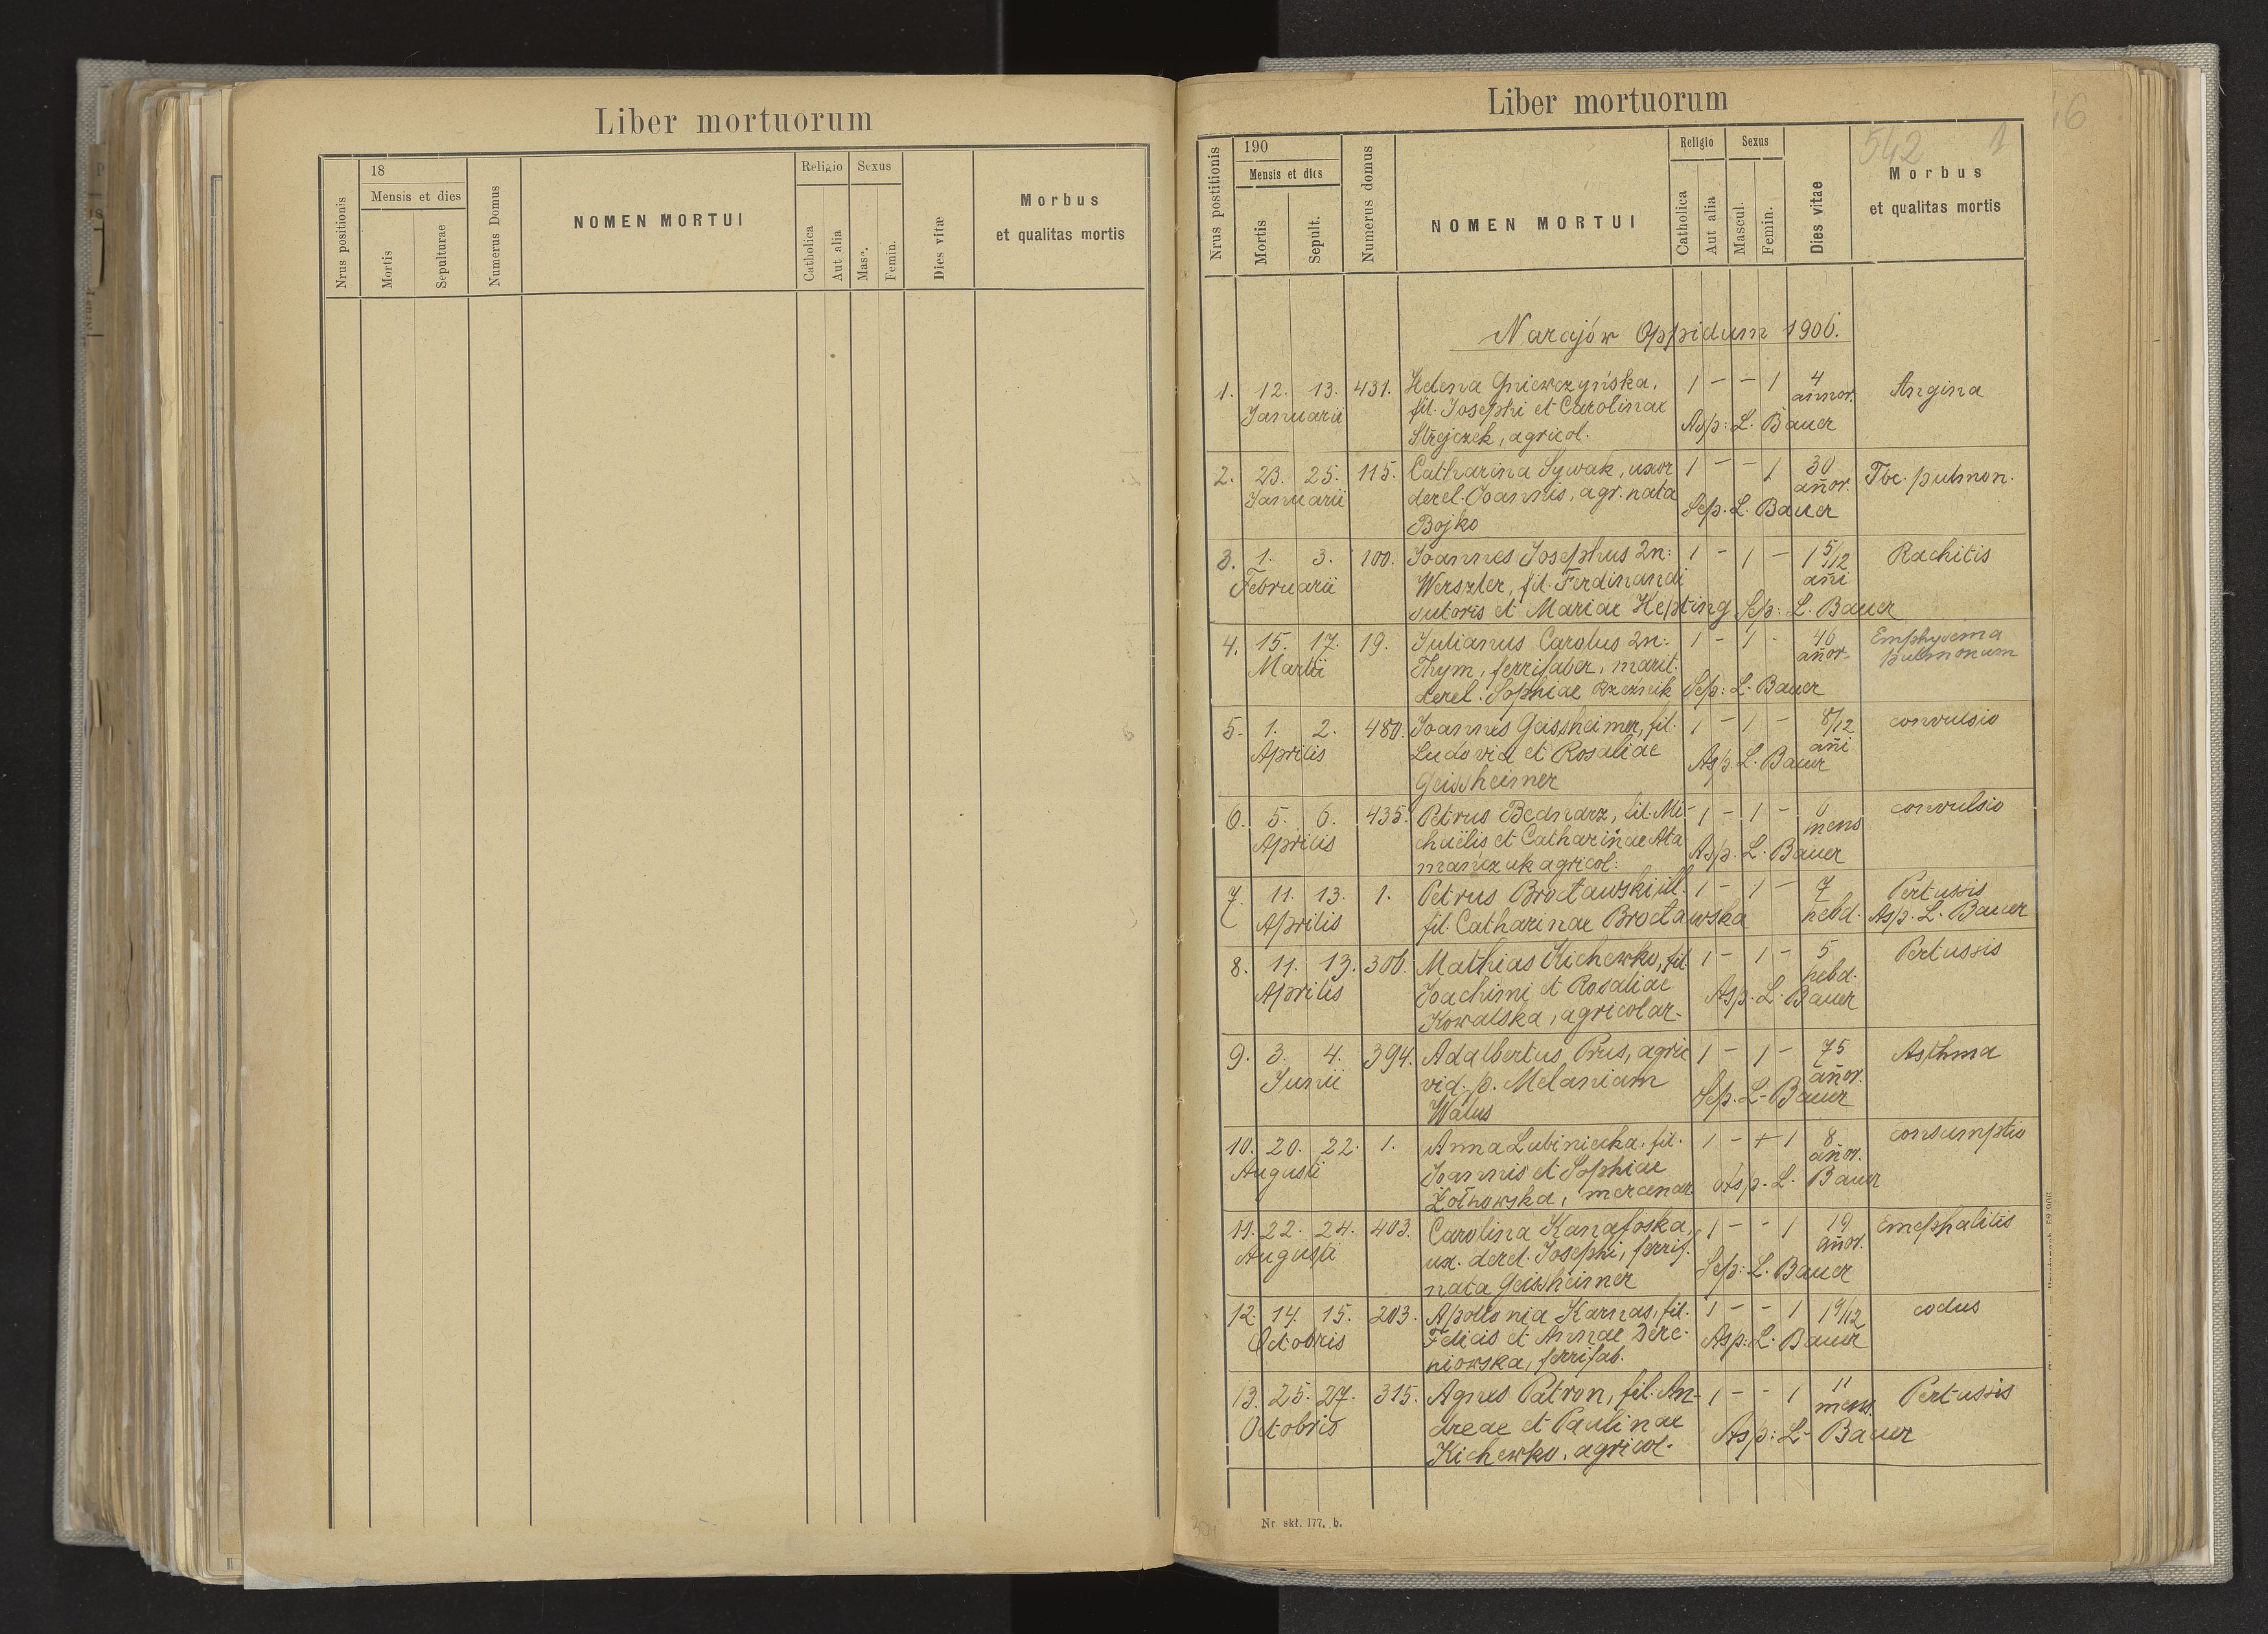 Liber mortuorum
Nrus positionis
18
Mensis et dies
Mortis
Sepulturae
Numerus Domus
NOMEN MORTUI
Religio
Sexus
Catholica
Aut alia
Masc.
Femin.
Dies vitæ
Morbus
et qualitas mortis
Liber mortuorum
542 1
Nrus postitionis
190
Mensis et dies
Mortis
Sepult.
Numerus domus
NOMEN MORTUI
Religio
Sexus
Catholica
Aut alia
Mascul.
Femin.
Dies vitae
Morbus
et qualitas mortis
Narajów Oppidum 1906.
1. 12. 13. 431. Helena Gniewczyńska, 1 - - 1 4 Angina
Januarii fil. Josephi et Carolinae annor.
Strejczek, agricol. Asp: L. Bauer
2. 23. 25. 115. Catharina Sywak, uxor 1 - - 1 30 Tbc. pulmon.
Januarii derel. Joannis, agr. nata añor.
Bojko Sep. L. Bauer
3. 1. 3. 100. Joannes Josephus 2n: 1 - 1 - 1 5/12 Rachitis
Februarii Werszler, fil. Ferdinandi añi
sutoris et Mariae Hepting Sep: L. Bauer
4. 15. 17. 19. Julianus Carolus 2n: 1 - 1 - 46 Emphysema
Martii Thym, ferrifaber, marit. añor. pulmonum
derel. Sophiae Rzeźnik Sep: L. Bauer
5. 1. 2. 480. Joannes Geissheimer, fil. 1 - 1 - 8/12 convulsio
Aprilis Ludovici et Rosaliae añi
Geissheimer Asp. L. Bauer
6. 5. 6. 435. Petrus Bednarz, fil. Mi- 1 - 1 - 6 convulsio
Aprilis chaëlis et Catharinae Ata- mens
mańczuk agricol: Asp. L. Bauer
7. 11. 13. 1. Petrus Brocławski ill. 1 - 1 - 7 Pertussis
Aprilis fil. Catharinae Brocławska hebd. Asp. L. Bauer
8. 11. 13. 306. Mathias Kichewko, fil. 1 - 1 - 5 Pertussis
Aprilis Joachimi et Rosaliae hebd.
Kowalska, agricolar- Asp. L. Bauer
9. 3. 4. 394. Adalbertus Prus, agric 1 - 1 - 75 Asthma
Junii vid. p. Melaniam añor.
Walus Sep. L. Bauer
10. 20. 22. 1. Anna Lubiniecka, fil. 1 - + 1 8 consumptio
Augusti Joannis et Sophiae añor.
Żołnowska, mercenar Asp. L. Bauer
11. 22. 24. 403. Carolina Kanafoska, 1 - - 1 19 Emephalitis
Augusti ux. derel. Josephi, ferrif. añor.
nata Geissheimer Sep: L. Bauer
12. 14. 15. 203. Apollonia Karnas, fil. 1 - - 1 1 9/12 codus
Octobris Felicis et Annae Dere-
niowska, ferrifab. Asp: L. Bauer
13. 25. 27. 315. Agnes Patron, fil. An- 1 - - 1 11 Pertussis
Octobris dreae et Paulinae mens.
Kichewko, agricol. Asp: L. Bauer
Nr. skł. 177. b.